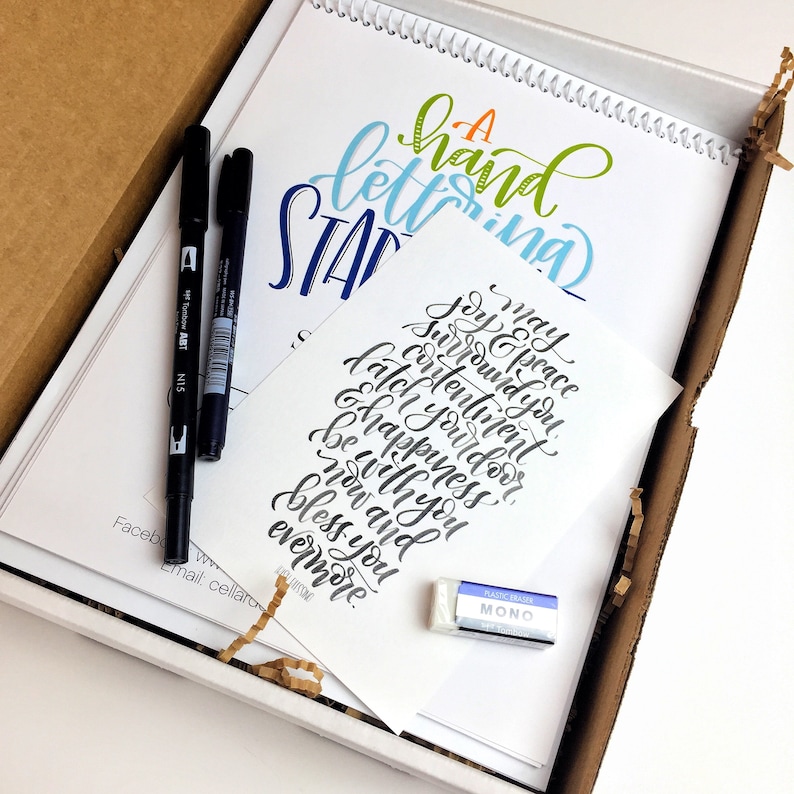 A
hand
lettering
STAR
may
joy & peace
surround you,
contentment
latch your door,
& happiness
be with you
now and
bless you
evermore.
IRISH BLESSING
Facebook: www
Email: cellard
Tombow ABT
N15
PLASTIC ERASER
MONO
Tombow